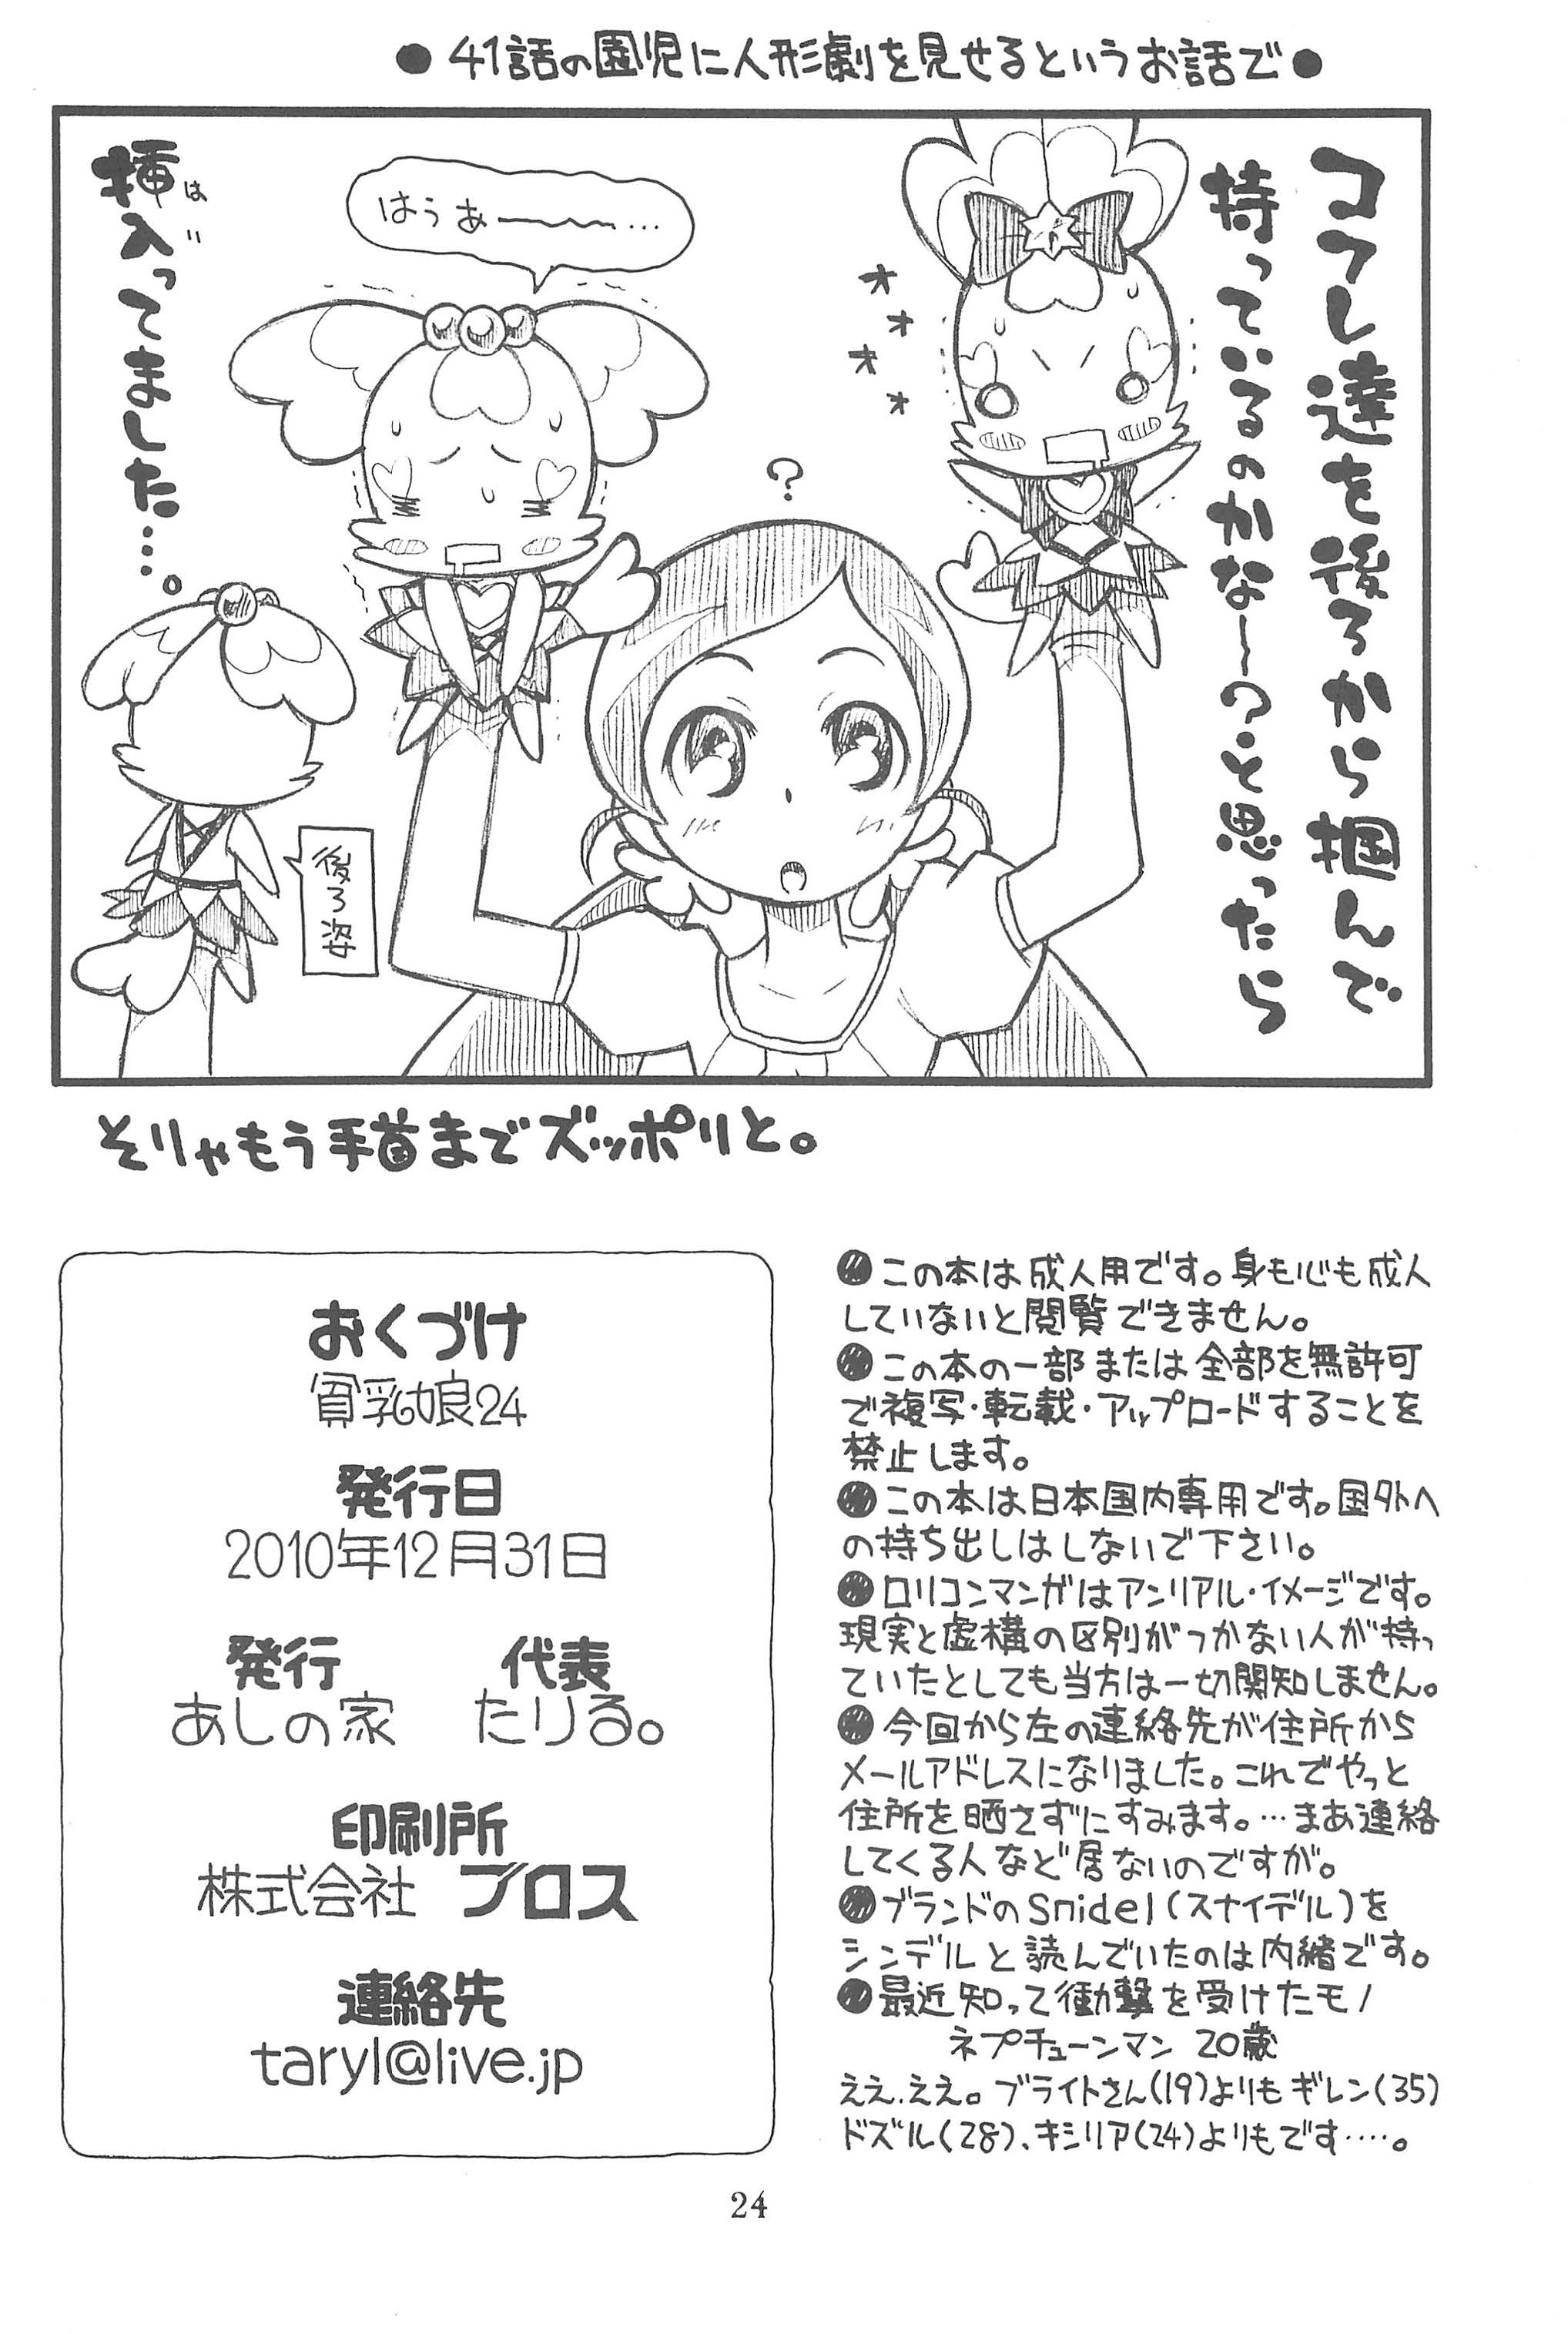 ●41話の園児に人形劇を見せるというお話で●
コフレ達を後ろから掴んで
持っているのかな～？と思ったら
はうあ――～～…
?
挿入ってました…。
は
い
後ろ姿
そりゃもう手首までズッポリと。
おくづけ
貧乳娘24
発行日
2010年12月31日
発行 代表
あしの家 たりる。
印刷所
株式会社 ブロス
連絡先
taryl@live.jp
●この本は成人用です。身も心も成人
していないと閲覧できません。
●この本の一部または全部を無許可
で複写・転載・アップロードすることを
禁止します。
●この本は日本国内専用です。国外へ
の持ち出しはしないで下さい。
●ロリコンマンガはアンリアル・イメージです。
現実と虚構の区別がつかない人が持っ
ていたとしても当方は一切関知しません。
●今回から左の連絡先が住所から
メールアドレスになりました。これでやっと
住所を晒さずにすみます。…まあ連絡
してくる人など居ないのですが。
●ブランドのSnidel(スナイデル)を
シンデルと読んでいたのは内緒です。
●最近知って衝撃を受けたモノ
ネプチューンマン 20歳
ええ.ええ。ブライトさん(19)よりもギレン(35)
ドズル(28)、キシリア(24)よりもです….。
24